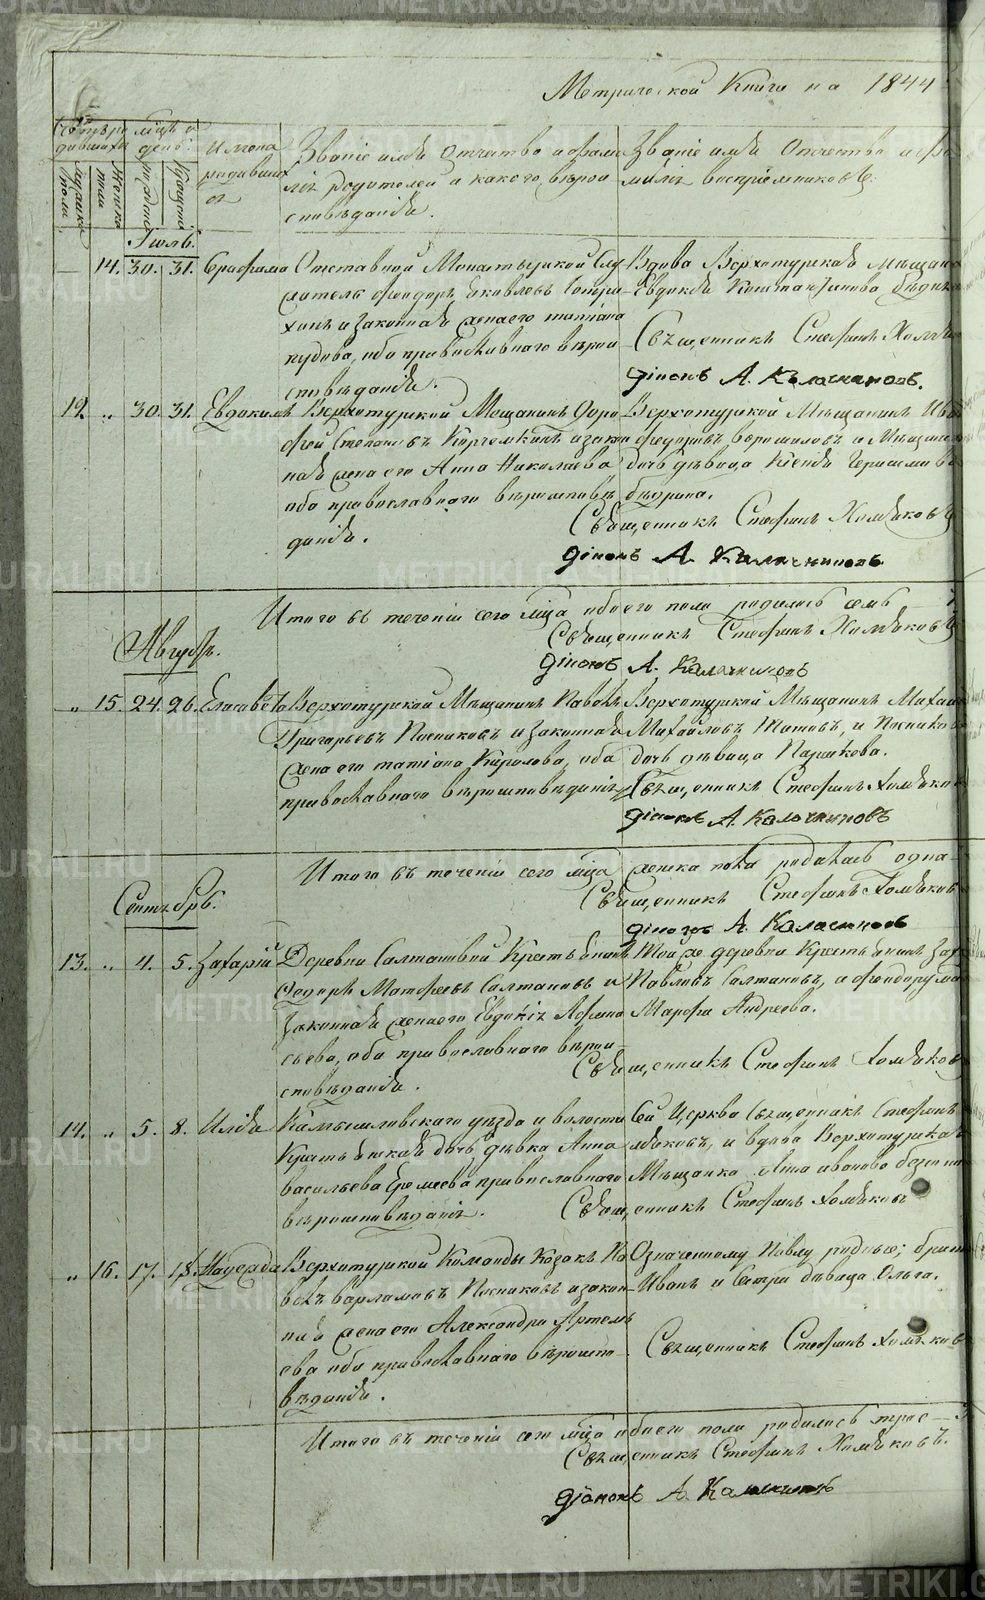 Метрической Книги на 1844
Счетъ родившихся
мѣсяцъ и день
Имена родившихся
Званіе имя Отчество и фамилія родителей и какого вѣроисповѣданія.
Званіе имя Отчество и фамилія воспріемниковъ
Мужеска пола
Женска пола
рожденія
крещенія
Іюль.
14. 30. 31. Серафима
Отставной Монастырской Слу
житель Феодоръ Яковлевъ
и законная жена его
оба православнаго вѣрои
сповѣданія.
Вдова Верхотурская Мѣщанка
Евдокія Константинова
Священникъ Стефанъ Хомяковъ
діаконъ А. Калачниковъ.
12. „ 30. 31. Евдокимъ
Верхотурской Мещанинъ Доро
фей Степановъ и закон
ная жена его Анна Николаева
оба православнаго вѣроисповѣ
данія.
Верхотурской Мѣщанинъ Иванъ
Федоровъ Ворошиловъ и Мѣщанская
дочь дѣвица Ксенія
Священникъ Стефанъ Хомяковъ
діаконъ А. Калачниковъ
Итого въ теченіи сего мѣсяца обоего пола родилось семь 7
Священникъ Стефанъ Хомяковъ
діаконъ А. Калачниковъ
Августъ.
„ 15. 24. 26. Елисавета
Верхотурской Мѣщанинъ Павелъ
Григорьевъ Посниковъ и законная
жена его Татіана Кирилова, оба
православнаго вѣроисповѣданія
Верхотурской Мѣщанинъ Михаилъ
Михайловъ Титовъ, и Посникова
дочь дѣвица
Священникъ Стефанъ Хомяковъ
діаконъ А. Калачниковъ
Итого въ теченіи сего мѣсяца женска пола родилась одна
Священникъ Стефанъ Хомяковъ
діаконъ А. Калачниковъ
Сентябрь.
13. „ 4. 5. Захарій
Деревни Салтановой Крестьянинъ
Федоръ Матфеевъ Салтановъ и
законная жена его Евдокія Афана
сьева, оба православнаго вѣрои
сповѣданія.
Той же деревни Крестьянинъ
Павловъ Салтановъ, и
Марфа Андреева.
Священникъ Стефанъ Хомяковъ
14. „ 5. 8. Илія
Камышловскаго уѣзда и волости
Крестьянская дочь дѣвка Анна
Васильева Еремеева православнаго
вѣроисповѣданія.
Сей Церкви Священникъ Стефанъ
Хомяковъ, и вдова Верхотурская
Мѣщанка Анна Иванова
Священникъ Стефанъ Хомяковъ
„ 16. 17. 18. Надежда
Верхотурской Команды Казакъ Па
велъ Варламовъ Посниковъ и закон
ная жена его Александра Артемь
ева оба православнаго вѣроиспо
вѣданія.
Означенному Павлу родные; братъ
Иванъ и Сестра дѣвица Ольга.
Священникъ Стефанъ Хомяковъ
Итого въ теченіи сего мѣсяца обоего пола родилось трое 3
Священникъ Стефанъ Хомяковъ.
діаконъ А. Калачниковъ
METRIKI.GASO-URAL.RU